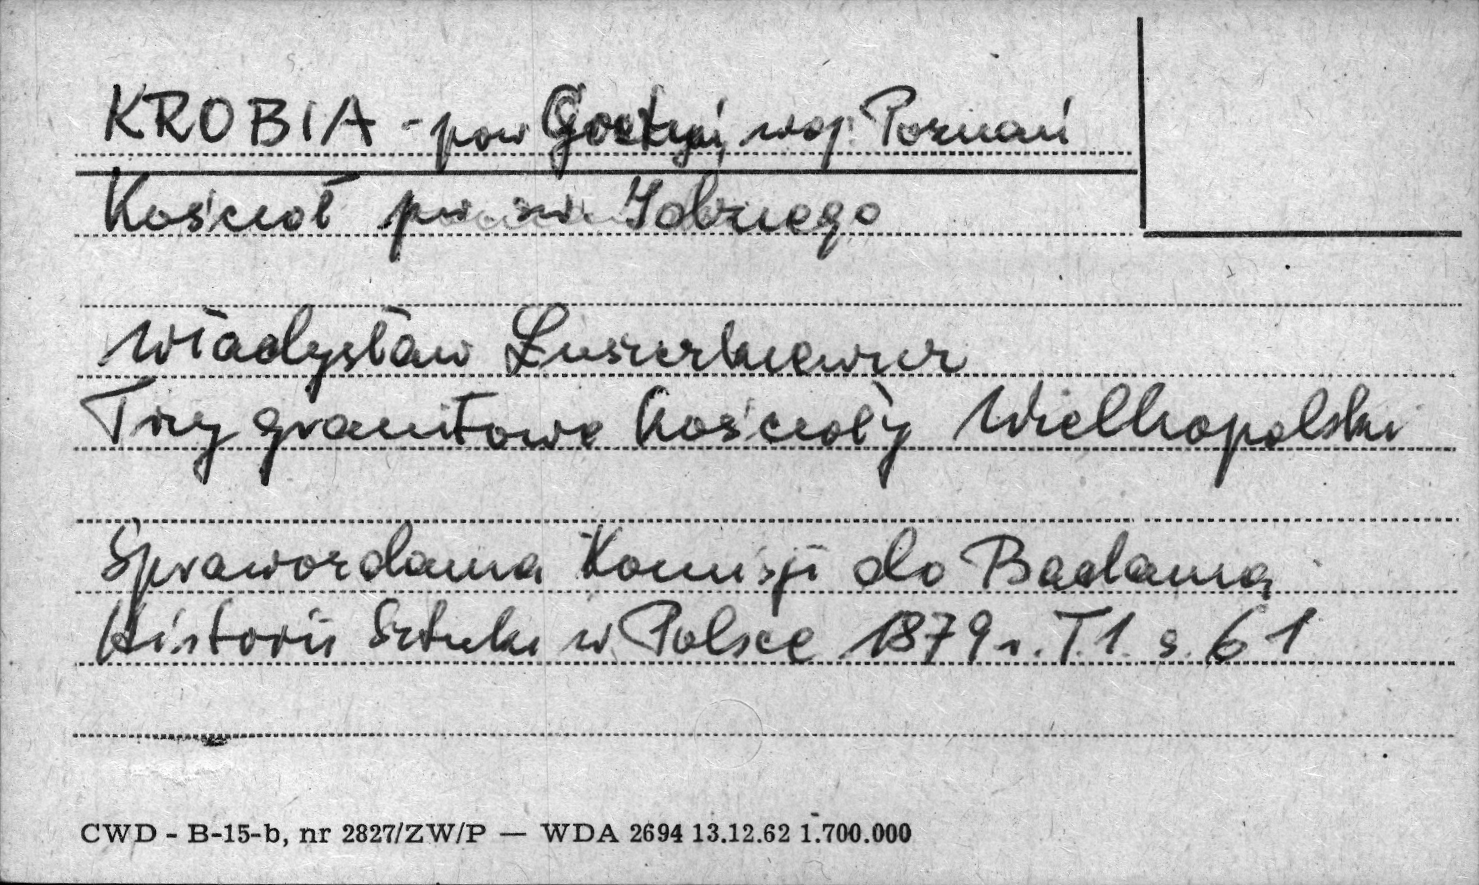 KROBIA - pow Gostyń, woj. Poznań
Kościoł pw. św. Idziego
Władysław Łuszczkiewicz
Trzy granitowe kościoły Wielkopolski
Sprawozdania Komisji do Badania
Historii Sztuki w Polsce 1879 r. T.1. s. 61
CWD - B-15-b, nr 2827/ZW/P — WDA 2694 13.12.62 1.700.000